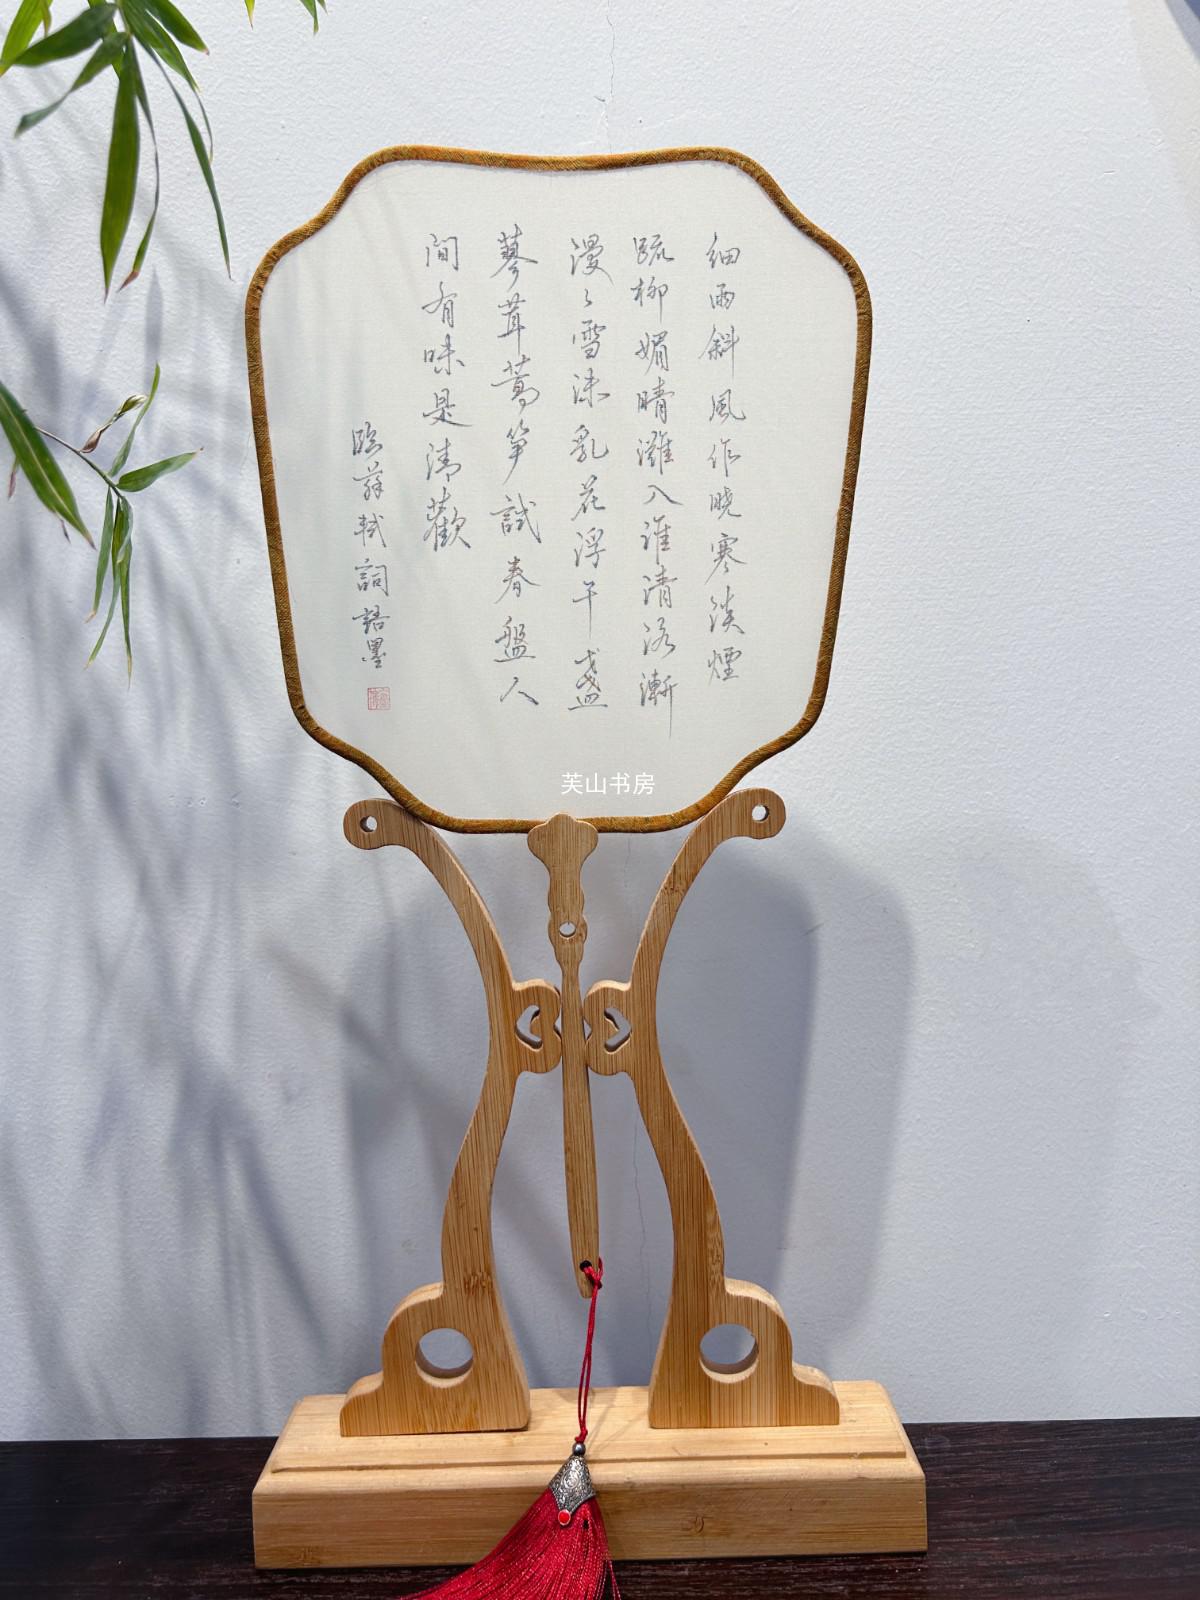 細雨斜風作晓寒淡煙
疏柳媚晴灘入淮清洛漸
漫々雪沫乳花浮午盞
蓼茸蒿笋試春盤人
間有味是清歡
臨蘇軾詞語墨
芙山书房